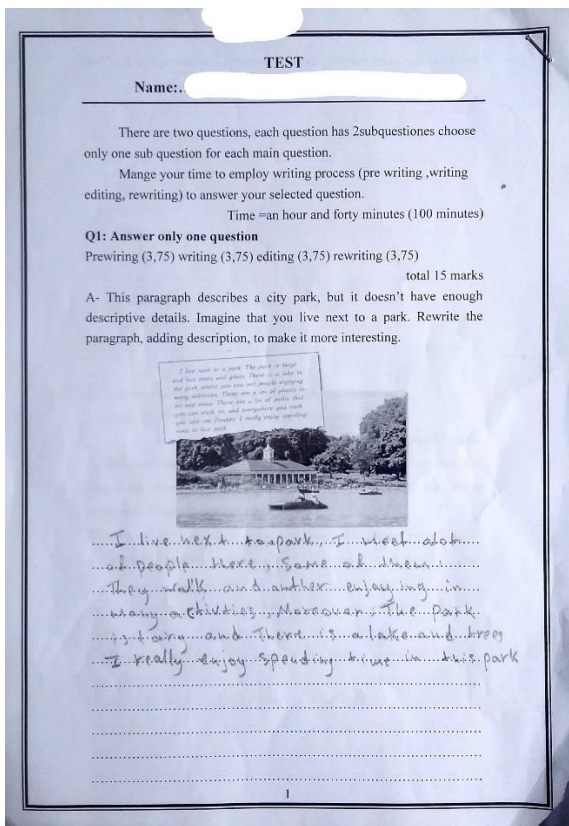 TEST
Name:..
There are two questions, each question has 2subquestiones choose
only one sub question for each main question.
Mange your time to employ writing process (pre writing ,writing
editing, rewriting) to answer your selected question.
Time =an hour and forty minutes (100 minutes)
Q1: Answer only one question
Prewiring (3,75) writing (3,75) editing (3,75) rewriting (3,75)
total 15 marks
A- This paragraph describes a city park, but it doesn't have enough
descriptive details. Imagine that you live next to a park. Rewrite the
paragraph, adding description, to make it more interesting.
I live next to a park. The park is large
and has trees and grass. There is a lake in
the park where you can see people enjoying
many activities. There are a lot of places to
sit and relax. There are a lot of paths that
you can walk on, and everywhere you walk
you can see flowers. I really enjoy spending
time in this park.
I live next to a park, I meet alot
of people there, Some of them
They walk and another enjaying in
many activities, Moreover, The park
is and There is a lake and trees
I really enjoy spending time in this park
1